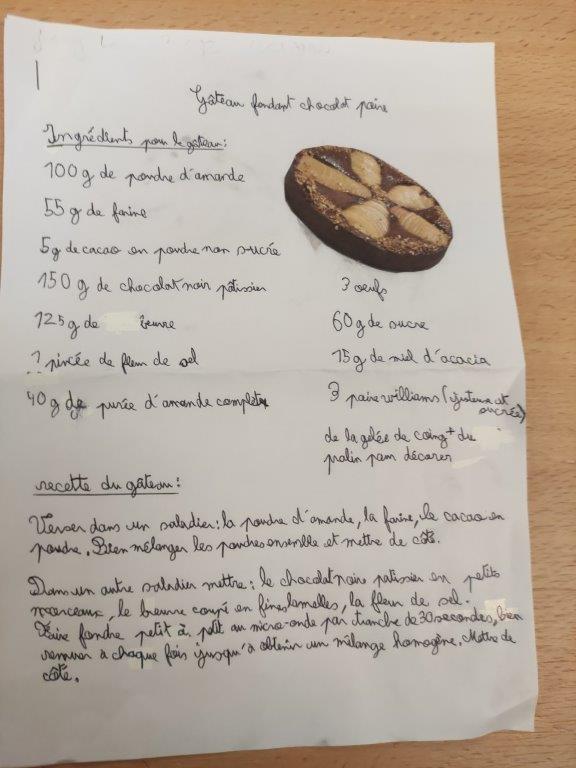 Gâteau fondant chocolat poire
Ingrédients pour le gâteau:
100g de poudre d'amande
55g de farine
5g de cacao en poudre non sucrée
150g de chocolat noir pâtissier
125g de beurre
1 pincée de fleur de sel
40g de purée d'amande complete
3 oeufs
60g de sucre
15g de miel d'acacia
3 poire williams (juteuse et
sucrée)
de la gelée de coing + du
pralin pour décorer
recette du gâteau:
Verser dans un saladier: la poudre d'amande, la farine, le cacao en
poudre. Bien mélanger les poudres ensemble et mettre de côté.
Dans un autre saladier mettre: le chocolat noire patissier en petits
morceaux, le beurre coupé en fines lamelles, la fleur de sel.
Faire fondre petit à petit au micro-onde par tranche de 30 secondes, bien
remuer à chaque fois jusqu'à obtenir un mélange homogène. Mettre de
côté.